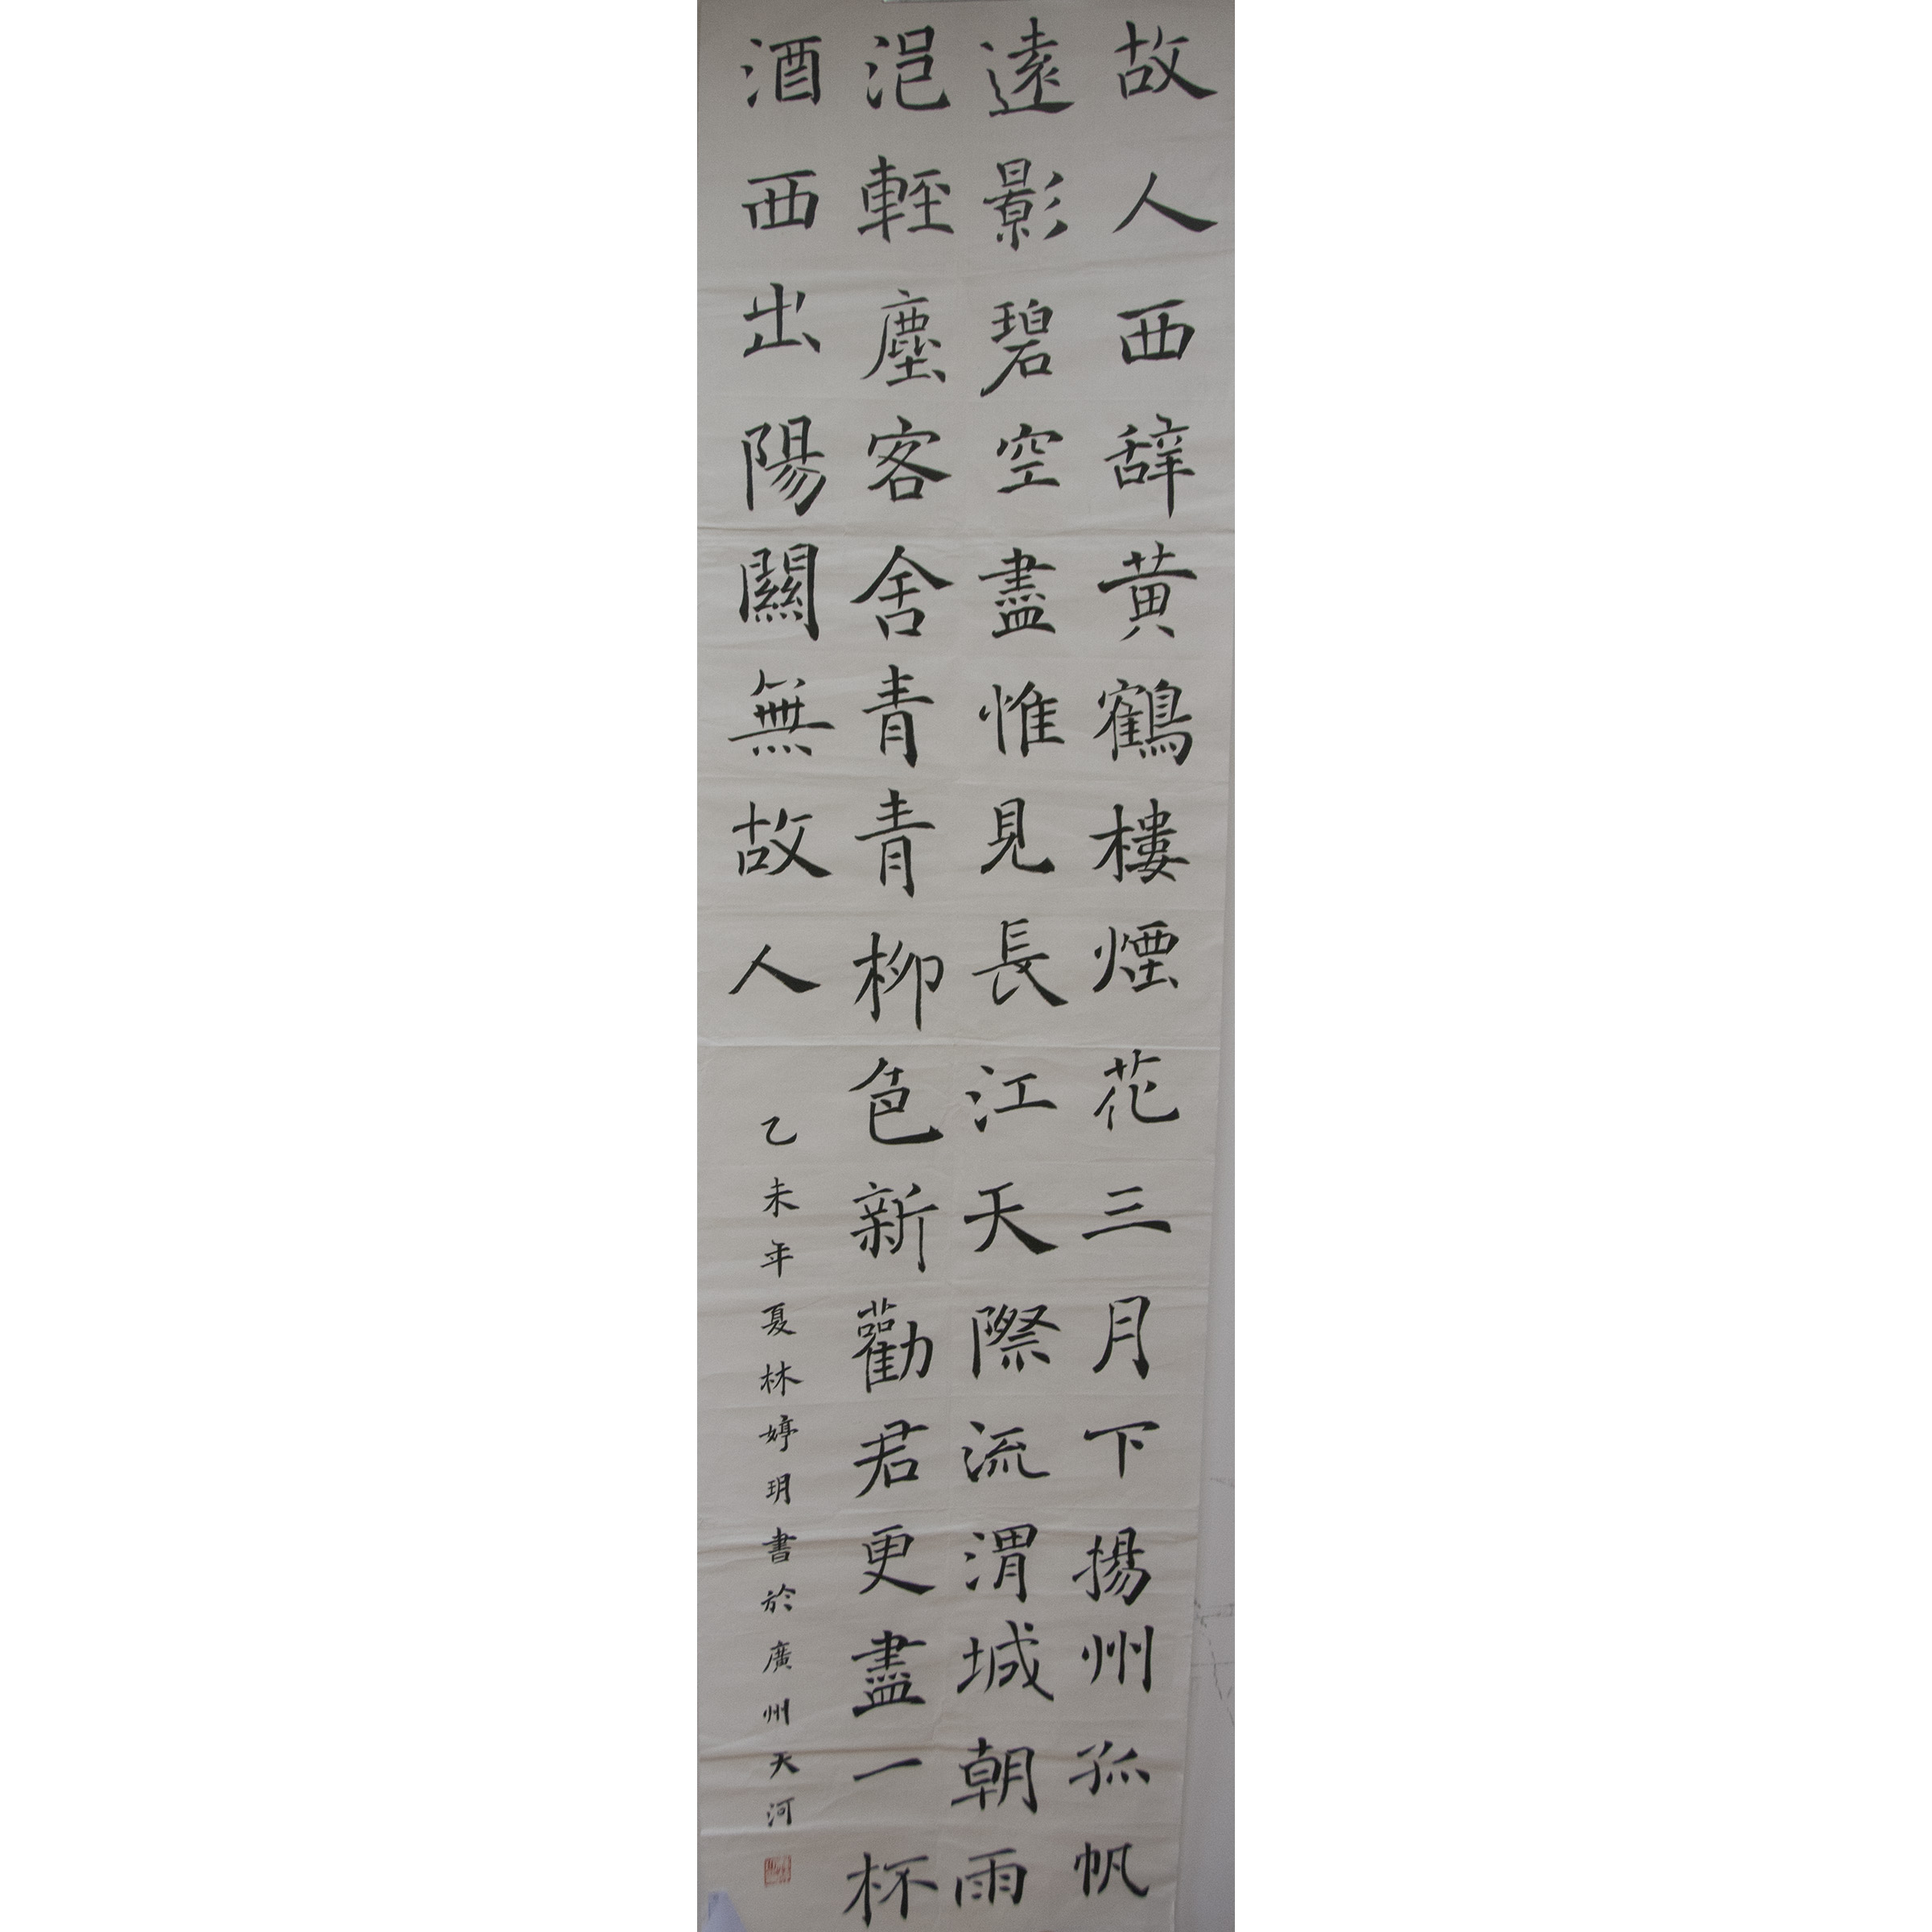 故人西辞黄鶴樓煙花三月下揚州孤帆
遠影碧空盡惟見長江天際流渭城朝雨
浥輕塵客舍青青柳色新勸君更盡一杯
酒西出陽關無故人
乙未年夏林婷玥書於廣州天河